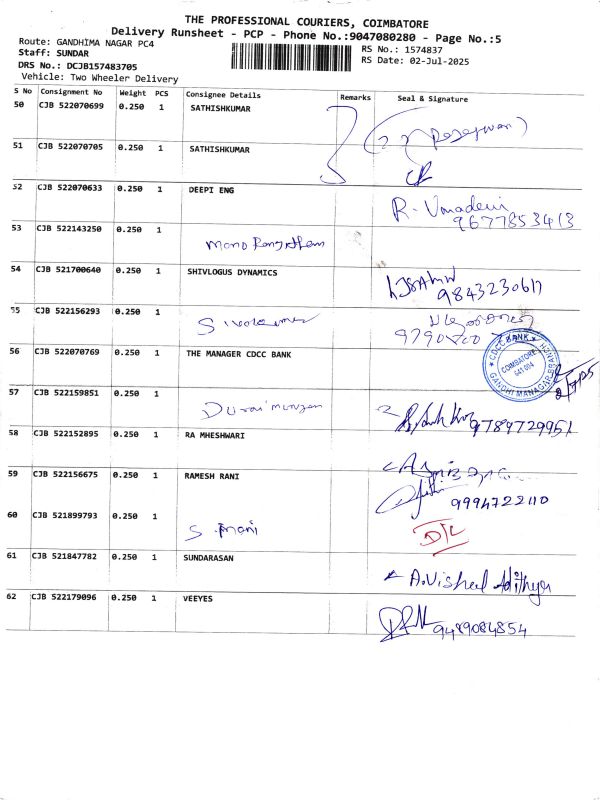 THE PROFESSIONAL COURIERS, COIMBATORE
Delivery Runsheet - PCP - Phone No.:9047080280 - Page No.:5
Route: GANDHIMA NAGAR PC4
RS No.: 1574837
Staff: SUNDAR
RS Date: 02-Jul-2025
DRS No.: DCJB157483705
Vehicle: Two Wheeler Delivery
S No Consignment No Weight PCS Consignee Details Remarks Seal & Signature
50 CJB 522070699 0.250 1 SATHISHKUMAR
51 CJB 522070705 0.250 1 SATHISHKUMAR
52 CJB 522070633 0.250 1 DEEPI ENG
R. Umadevi
9677853413
53 CJB 522143250 0.250 1
54 CJB 521700640 0.250 1 SHIVLOGUS DYNAMICS
9843230617
55 CJB 522156293 0.250 1
Sivakumar
56 CJB 522070769 0.250 1 THE MANAGER CDCC BANK
CDCC BANK
COIMBATORE
641 004
GANDHI MANAGAR-BRANCH
57 CJB 522159851 0.250 1
Durai murugan
9789729951
58 CJB 522152895 0.250 1 RA MHESHWARI
59 CJB 522156675 0.250 1 RAMESH RANI
9994722110
60 CJB 521899793 0.250 1
S. Mani
D/L
61 CJB 521847782 0.250 1 SUNDARASAN
A. Vishal Adithya
62 CJB 522179096 0.250 1 VEEYES
9489084854